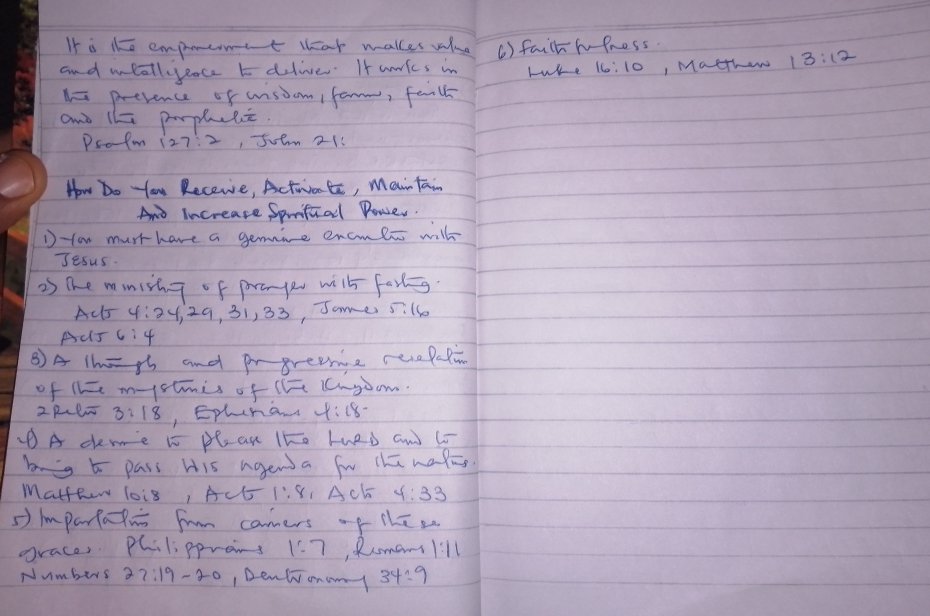 It is the empowerment that makes value
and intelligence to deliver. It works in
the presence of wisdom, favour, faith
and the prophetic.
Psalm 127:2, John 21:
How Do You Receive, Activate, Maintain
And Increase Spiritual Power.
1) You must have a genuine encounter with
JESUS.
2) The ministry of prayer with fasting.
Acts 4:24,29,31,33, James 5:16
Acts 6:4
3) A through and progressive revelation
of the mysteries of the Kingdom.
2 Peter 3:18, Ephesians 1:18
4) A desire to please the LORD and to
bring to pass HIS agenda for the nations.
Matthew 10:8, Act 1:8, Acts 4:33
5) Impartation from carriers of these
graces. Philippians 1:7, Romans 1:11
Numbers 27:19-20, Deutronomy 34:9
6) Faithfulness.
Luke 16:10, Matthew 13:12